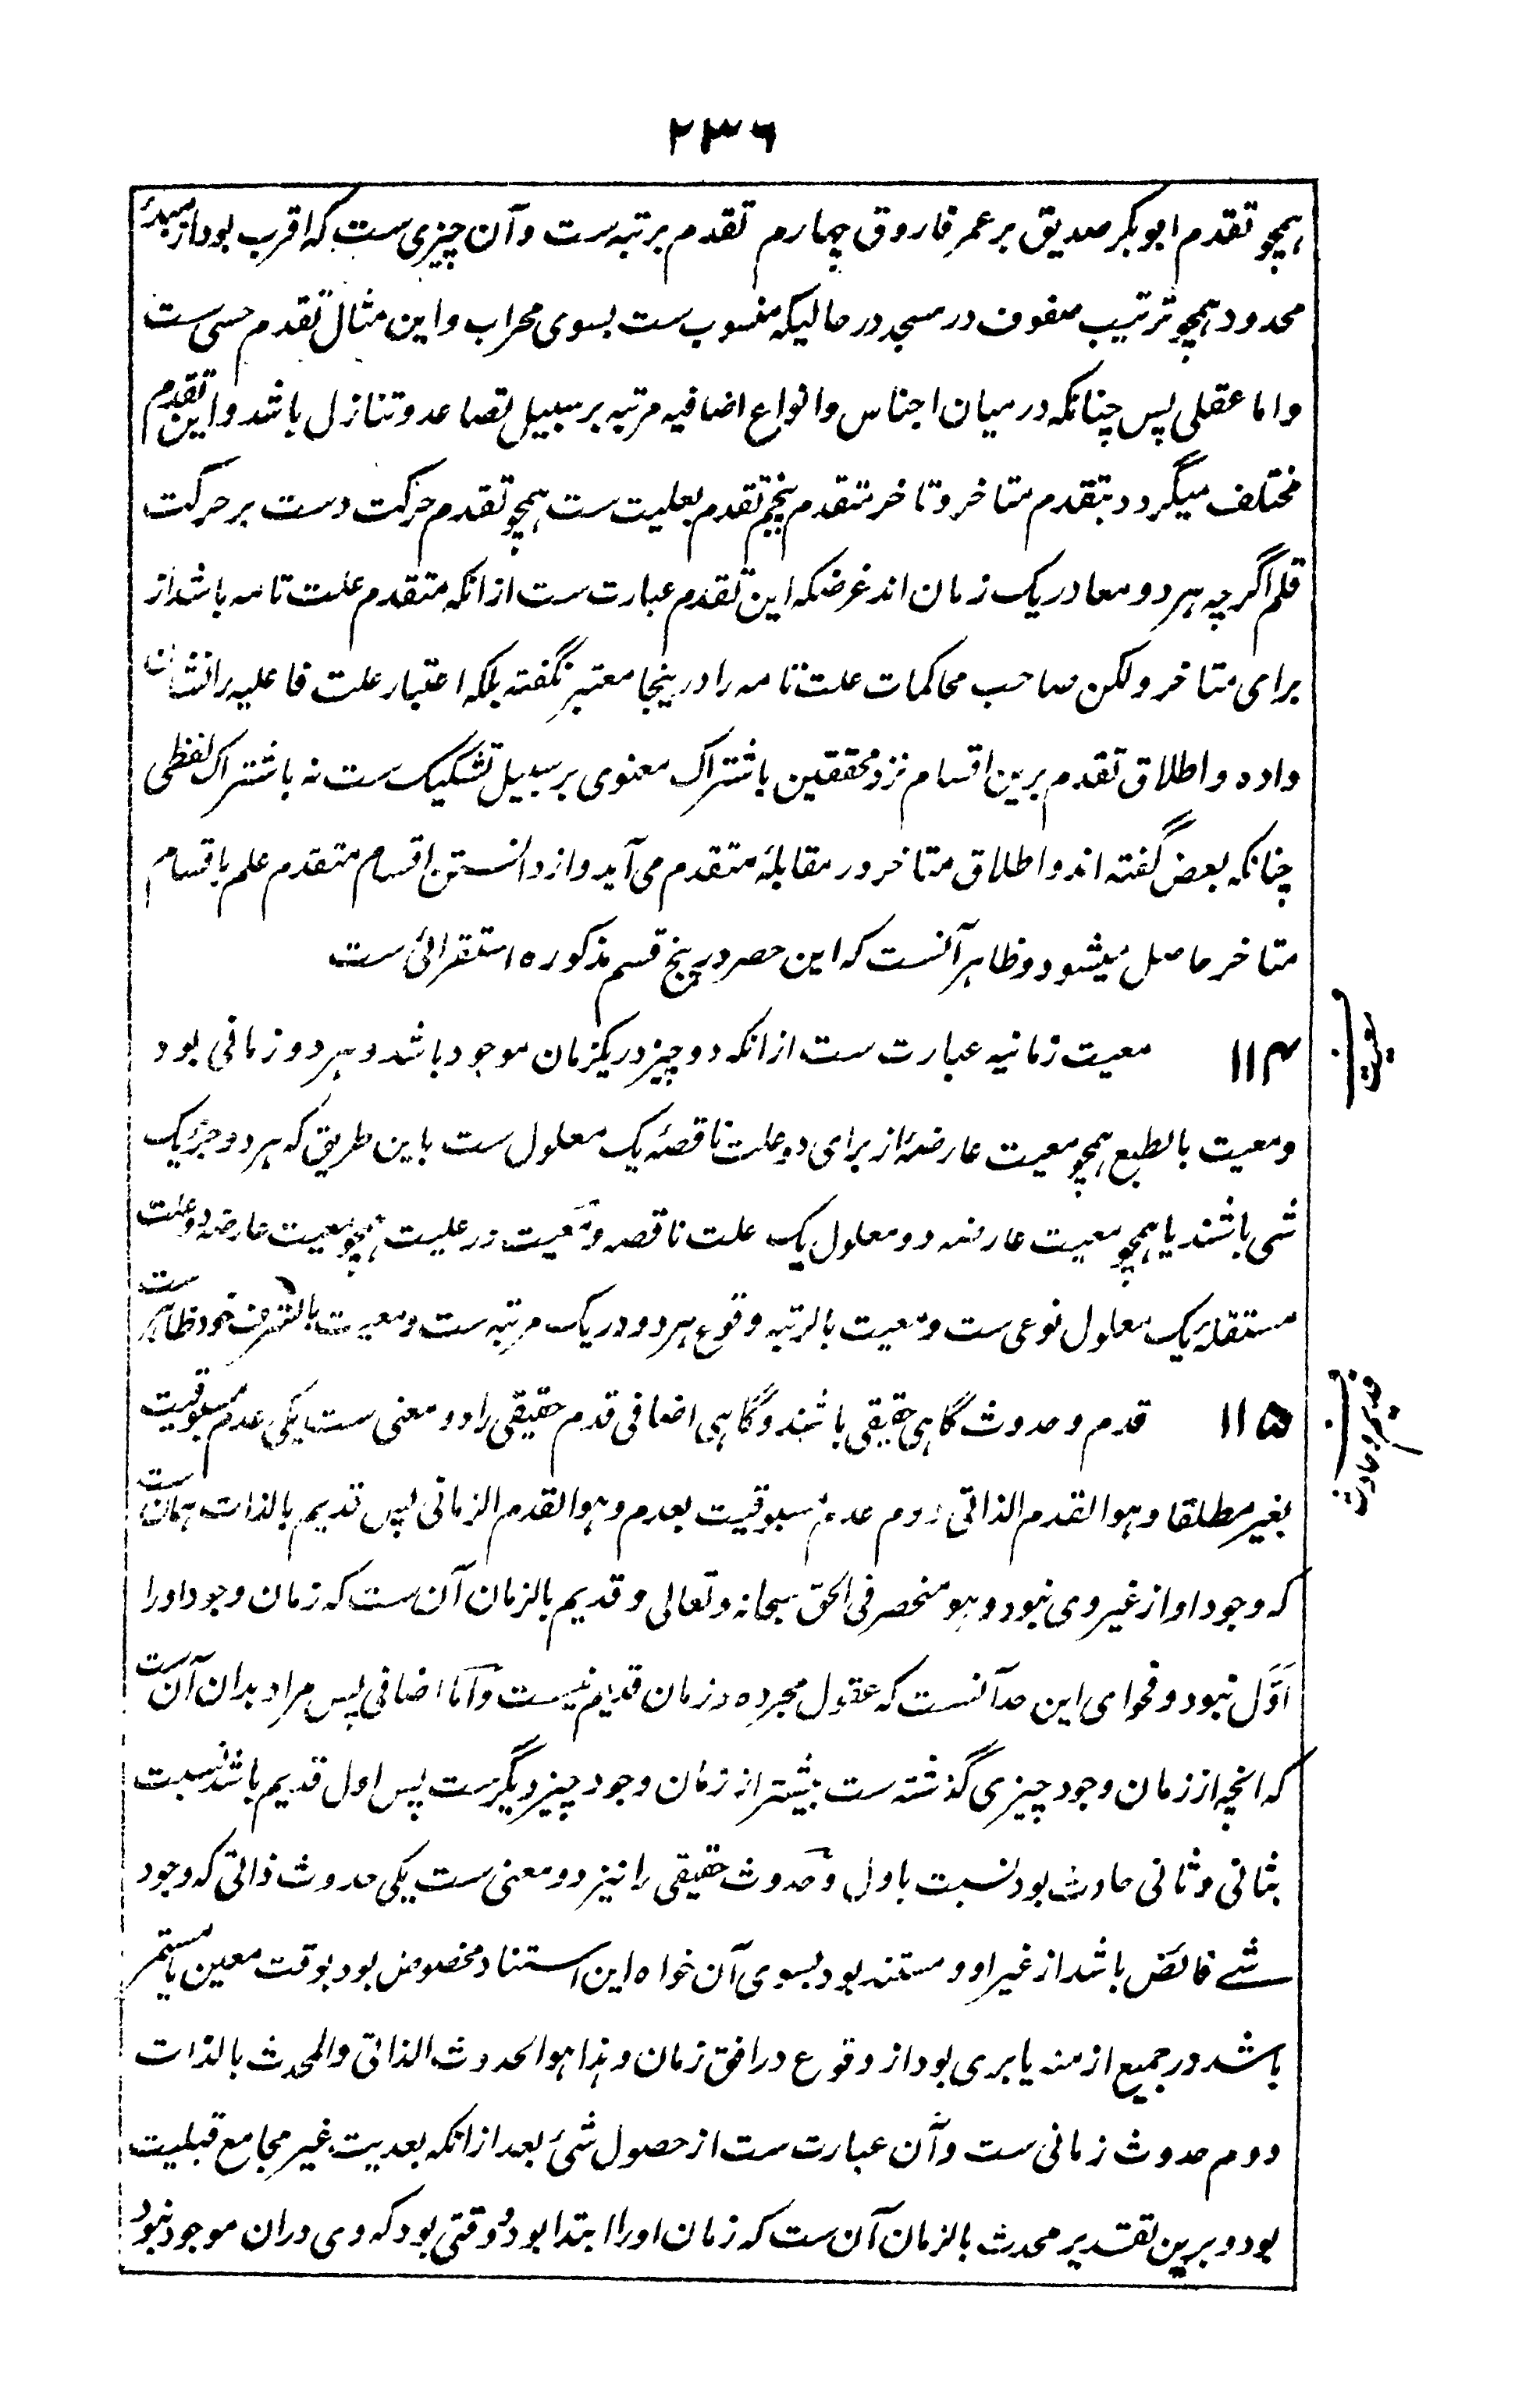 ۲۳۶
همچو تقدم ابوبکر صدیق بر عمر فاروق چهارم تقدم برتبه ست و آن چیزی ست که اقرب بود از مبدء
محدود همچو ترتیب صفوف در مسجد در حالیکه منسوب ست بسوی محراب و این مثال تقدم حسی ست
و اما عقلی پس چنانکه درمیان اجناس و انواع اضافیه مرتبه بر سبیل تصاعد و تنازل باشد و این تقدم
مختلف میگردد بتقدم متاخر و تاخر متقدم پنجم تقدم بعلیت ست همچو تقدم حرکت دست بر حرکت
قلم اگرچه هر دو معا در یک زمان اند غرضکه این تقدم عبارت ست ازانکه متقدم علت تامه باشد از
برای متاخر و لکن صاحب محاکمات علت تامه را درینجا معتبر نگفته بلکه اعتبار علت فاعلیه را نشان
داده و اطلاق تقدم برین اقسام نزد محققین باشتراک معنوی بر سبیل تشکیک ست نه باشتراک لفظی
چنانکه بعض گفته اند و اطلاق متاخر در مقابلهٔ متقدم می آید و از دانستن اقسام متقدم علم باقسام
متاخر حاصل میشود و ظاهر آنست که این حصر در پنج قسم مذکوره استقرائی ست
معیت
۱۱۴ معیت زمانیه عبارت ست ازانکه دو چیز در یکزمان موجود باشد و هر دو زمانی بود
و معیت بالطبع همچو معیت عارضهٔ از برای دو علت ناقصهٔ یک معلول ست باین طریق که هر دو جزء یک
شی باشند یا همچو معیت عارضه دو معلول یک علت ناقصه و معیت در علیت همچو معیت عارضه دو علت
مستقله یک معلول نوعی ست و معیت بالرتبه وقوع هر دو در یک مرتبه ست و معیت بالشرف خود ظاهر ست
قدیم و حادث
۱۱۵ قدم و حدوث گاهی حقیقی باشند و گاهی اضافی قدم حقیقی را دو معنی ست یکی عدم مسبوقیت
بغیر مطلقا و هو القدم الذاتی دوم عدم مسبوقیت بعدم و هو القدم الزمانی پس قدیم بالذات همان ست
که وجود او از غیر وی نبود و هو منحصر فی الحق سبحانه و تعالی و قدیم بالزمان آن ست که زمان وجود او را
اول نبود و فحوای این حد آنست که عقول مجرده در زمان قدیم نیست و اما اضافی پس مراد بدان آن ست
که انچه از زمان وجود چیزی گذشته ست بیشتر از زمان وجود چیز دیگر ست پس اول قدیم باشد نسبت
بثانی و ثانی حادث بود نسبت باول و حدوث حقیقی را نیز دو معنی ست یکی حدوث ذاتی که وجود
شے فائض باشد از غیر او و مستند بود بسوی آن خواه این استناد مخصوص بود بوقت معین یا مستمر
باشد در جمیع ازمنه یا بری بود از وقوع در افق زمان و هذا هو الحدوث الذاتی و المحدث بالذات
دوم حدوث زمانی ست و آن عبارت ست از حصول شئ بعد ازانکه بعدیت غیر مجامع قبلیت
بود و برین تقدیر محدث بالزمان آن ست که زمان او را ابتدا بود و وقتی بود که وی دران موجود نبود